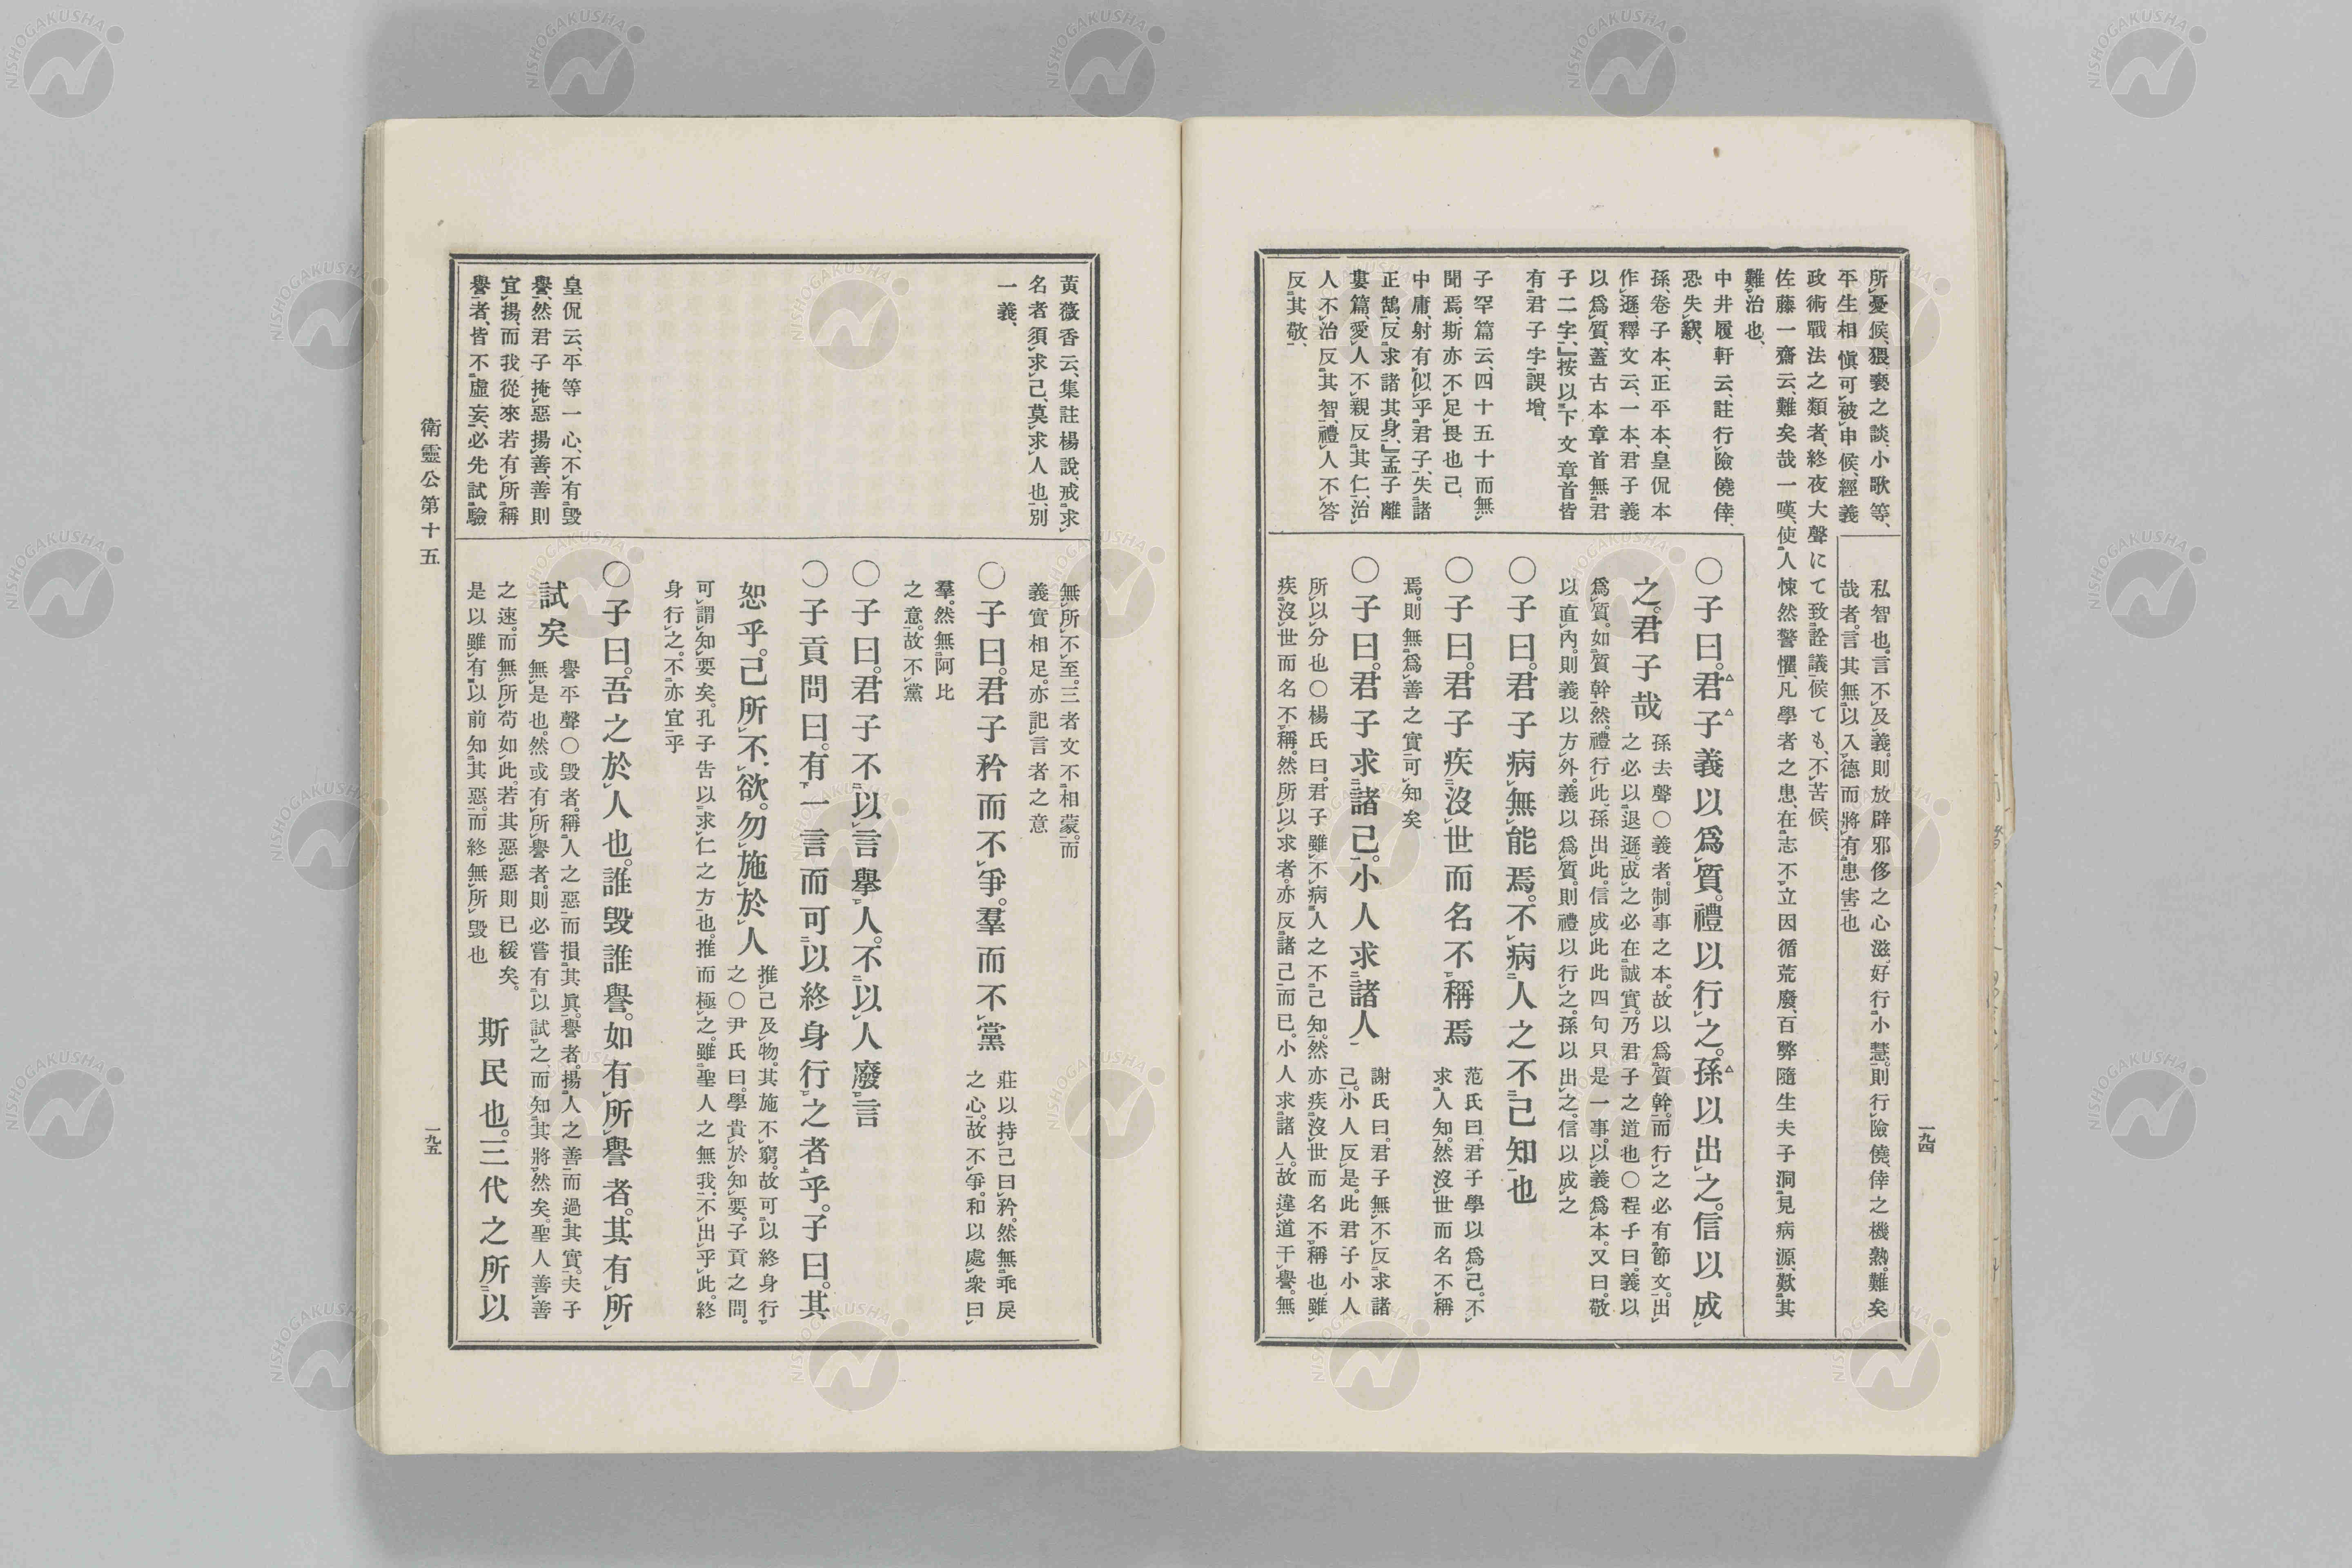 所憂候、猥褻之談、小歌等、
平生相愼可被申候、經義
政術戰法之類者、終夜大聲にて致詮議候ても、不苦候、
佐藤一齋云、難矣哉一嘆、使人悚然警懼、凡學者之患、在志不立因循荒廢、百弊隨生夫子洞見病源、歎其
難治也、
中井履軒云、註行險僥倖、
恐失竅、
孫、卷子本、正平本、皇侃本
作遜、釋文云、一本、君子義
以爲質、蓋古本章首無君
子二字、』按以下文章首皆
有君子字誤增、
子罕篇云、四十五十而無
聞焉、斯亦不足畏也已、
中庸、射有似乎君子、失諸
正鵠、反求諸其身、』孟子離
婁篇、愛人不親反其仁、治
人不治反其智、禮人不答
反其敬、
私智也。言不及義。則放辟邪侈之心滋。好行小慧。則行險僥倖之機熟。難矣
哉者。言其無以入德。而將有患害也
〇子曰。君子義以爲質。禮以行之。孫以出之。信以成
之。君子哉
孫去聲〇義者。制事之本。故以爲質幹。而行之必有節文。出
之必以退遜。成之必在誠實。乃君子之道也〇程子曰。義以
爲質。如質幹然。禮行此。孫出此。信成此此四句只是一事。以義爲本。又曰。敬
以直內。則義以方外。義以爲質。則禮以行之。孫以出之。信以成之
〇子曰。君子病無能焉。不病人之不己知也
〇子曰。君子疾沒世而名不稱焉
范氏曰。君子學以爲己。不
求人知。然沒世而名不稱
焉。則無爲善之實可知矣
〇子曰。君子求諸己。小人求諸人
謝氏曰。君子無不反求諸
己。小人反是。此君子小人
所以分也〇楊氏曰。君子雖不病人之不己知。然亦疾沒世而名不稱也。雖
疾沒世而名不稱。然所以求者。亦反諸己而已。小人求諸人。故違道干譽。無
一九四
黃薇香云、集註楊說、戒求
名者須求己、莫求人也、別
一義、
皇侃云、平等一心、不有毀
譽、然君子掩惡揚善、善則
宜揚、而我從來若有所稱
譽者、皆不虛妄、必先試驗
無所不至。三者文不相蒙。而
義實相足。亦記言者之意
〇子曰。君子矜而不爭。羣而不黨
莊以持己曰矜。然無乖戾
之心。故不爭。和以處衆曰
羣。然無阿比
之意。故不黨
〇子曰。君子不以言擧人。不以人廢言
〇子貢問曰。有一言而可以終身行之者乎。子曰。其
恕乎。己所不欲。勿施於人
推己及物。其施不窮。故可以終身行
之〇尹氏曰。學貴於知要。子貢之問。
可謂知要矣。孔子告以求仁之方也。推而極之。雖聖人之無我。不出乎此。終
身行之。不亦宜乎
〇子曰。吾之於人也。誰毀誰譽。如有所譽者。其有所
試矣
譽平聲〇毀者。稱人之惡而損其眞。譽者。揚人之善而過其實。夫子
無是也。然或有所譽者。則必嘗有以試之、而知其將然矣。聖人善善
之速。而無所苟如此。若其惡惡則已緩矣。
是以雖有以前知其惡。而終無所毀也
斯民也。三代之所以
衛靈公第十五
一九五
NISHOGAKUSHA